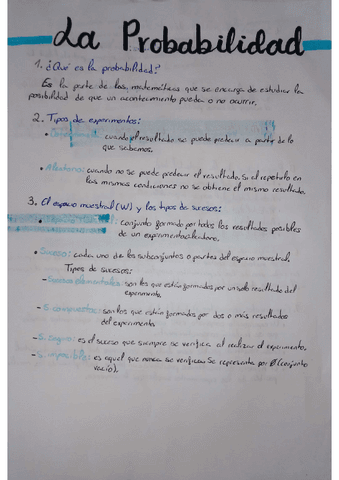 La Probabilidad
1. ¿Qué es la probabilidad?
Es la parte de las matemáticas que se encarga de estudiar la
posibilidad de que un acontecimiento pueda o no ocurrir.
2. Tipos de experimentos:
: cuando el resultado se puede predecir a partir de lo
que sabemos.
• Aleatorio: cuando no se puede predecir el resultado. Si el repetirlo en
las mismas condiciones no se obtiene el mismo resultado.
3. El espacio muestral (W) y los tipos de sucesos:
: conjunto formado por todos los resultados posibles
de un experimento aleatorio.
• Suceso: cada uno de los subconjuntos o partes del espacio muestral.
Tipos de sucesos:
- Sucesos elementales: son los que están formados por un solo resultado del
experimento.
- S. compuestos: son los que están formados por dos o más resultados
del experimento.
- S. seguro: es el suceso que siempre se verifica al realizar el experimento.
- S. imposible: es aquel que nunca se verifica. Se representa por Ø (conjunto
vacío).